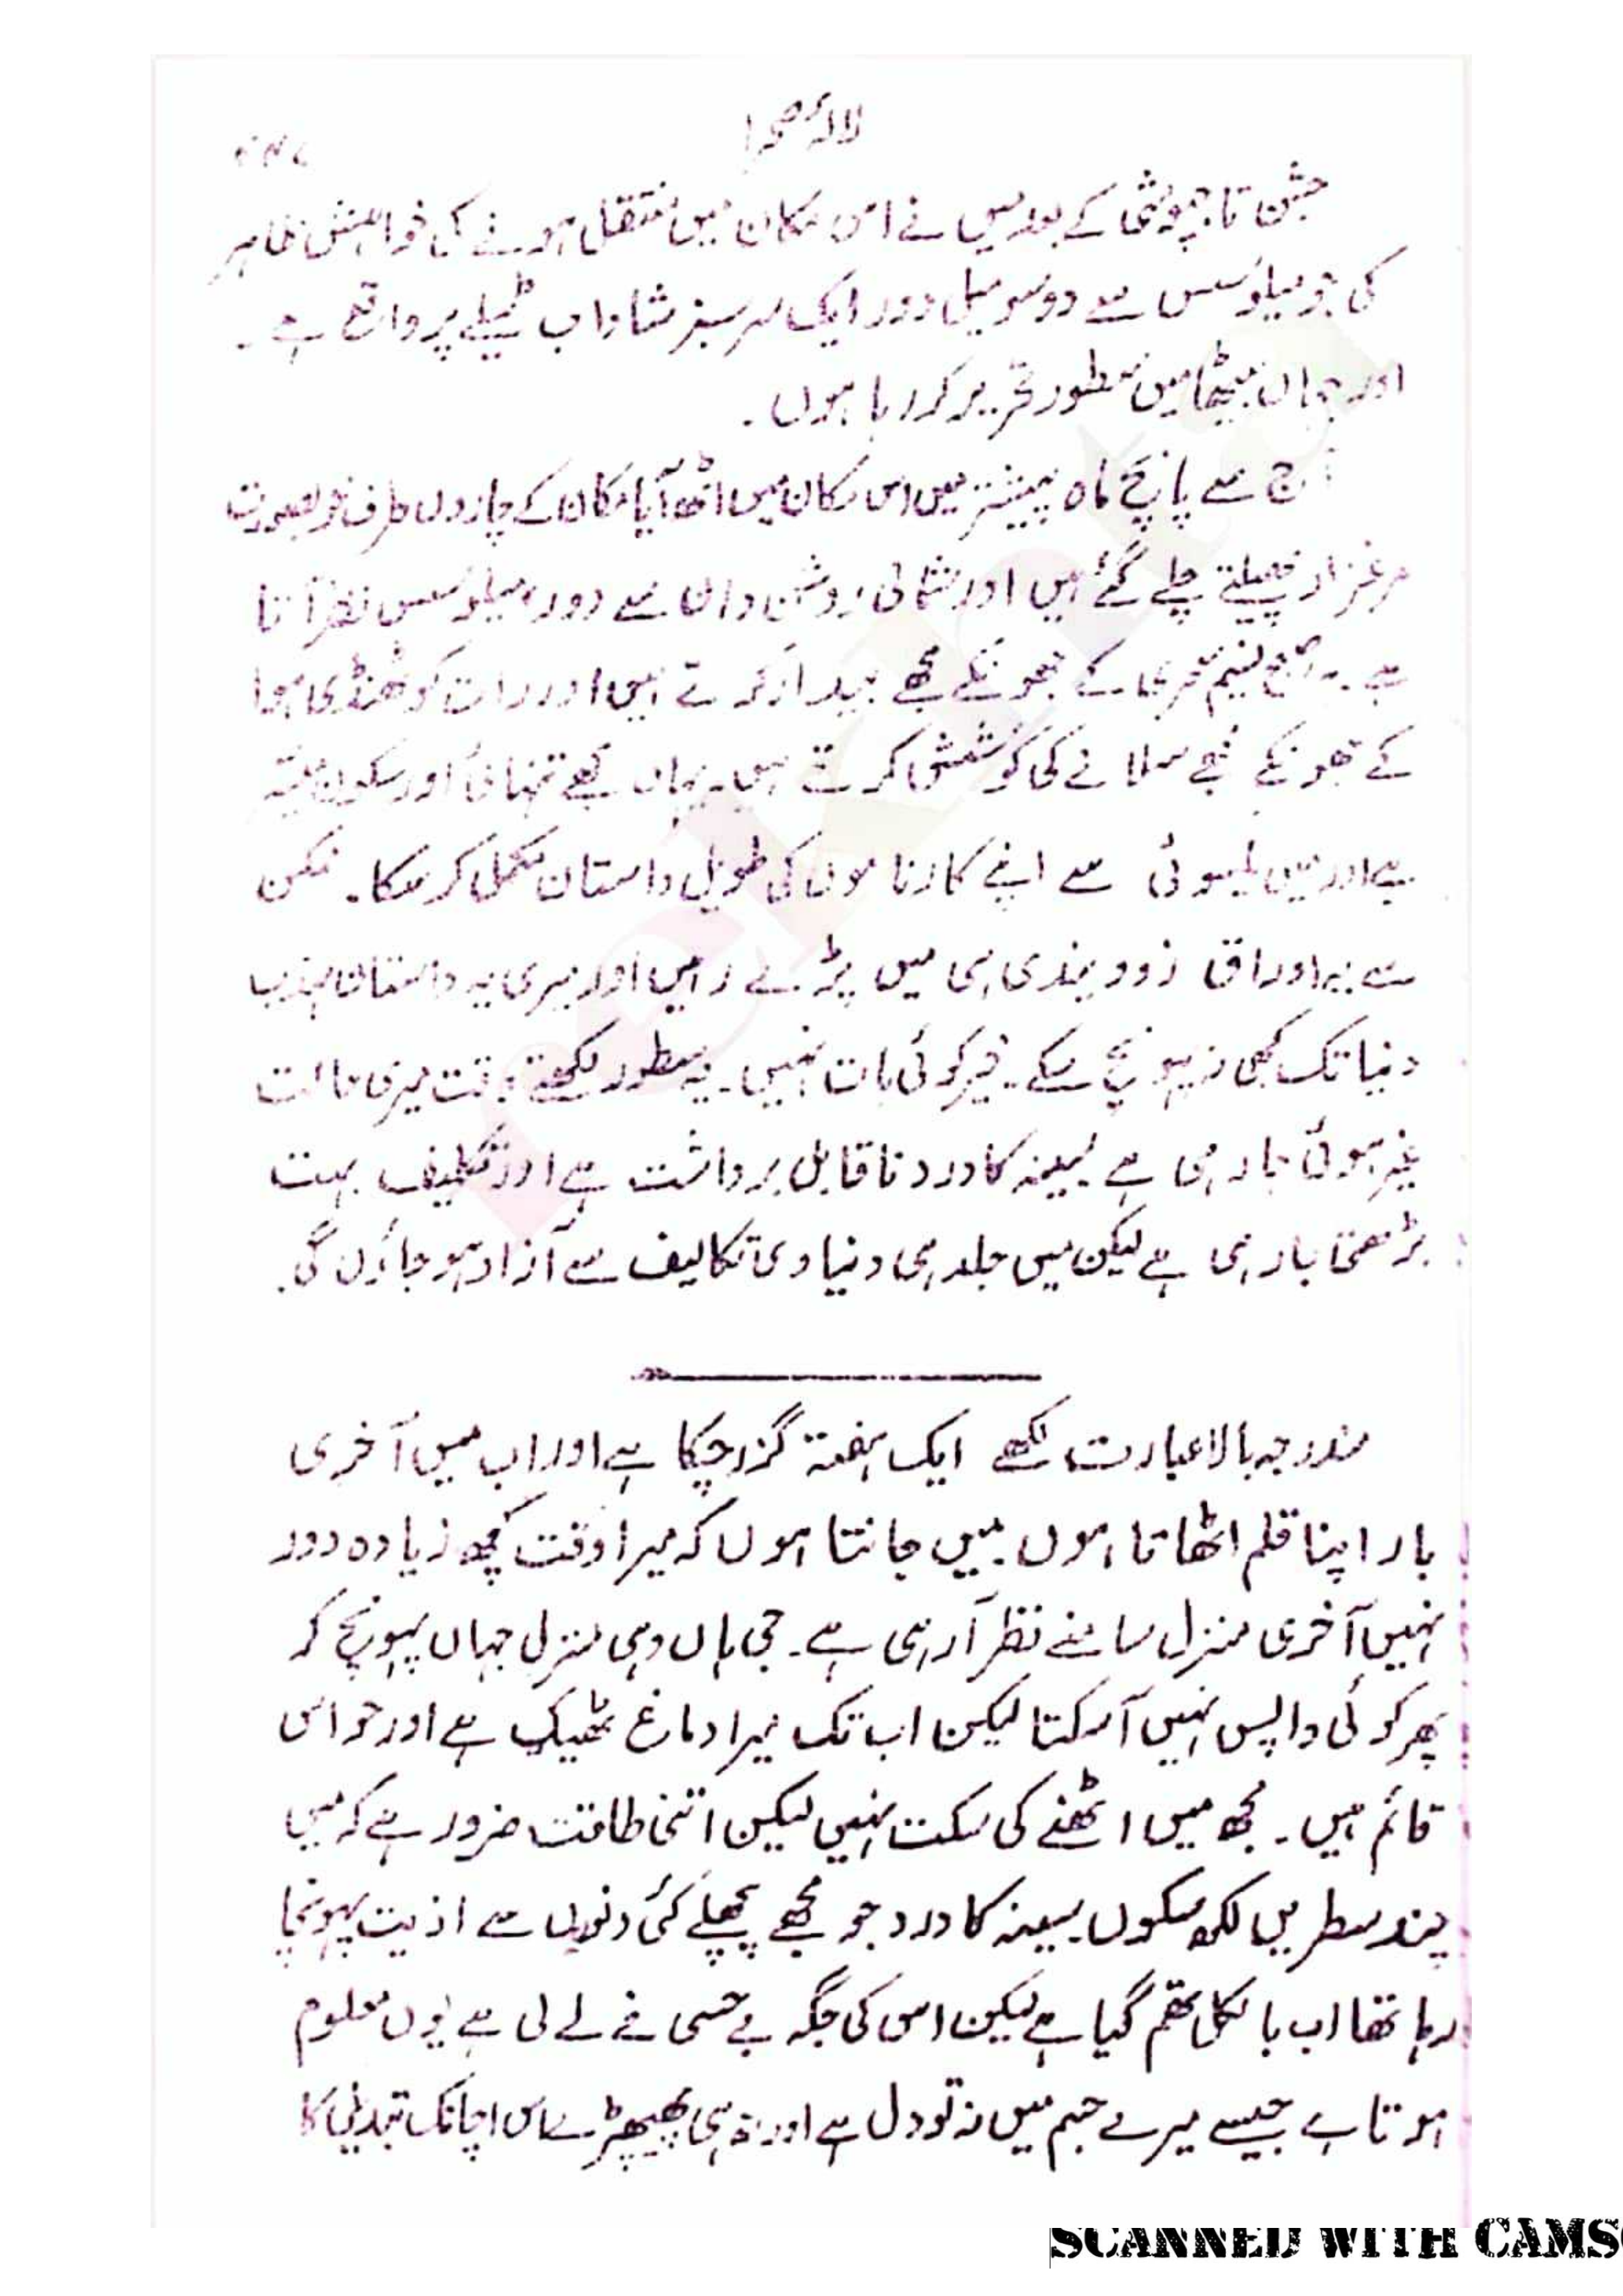 لالۂ صحرا
جشن تاجپوشی کے بعد میں نے اس مکان میں منتقل ہونے کی خواہش ظاہر
کی جو میلوسس سے دوسو میل دور ایک سرسبز شاداب ٹیلے پر واقع ہے ۔
اور جہاں بیٹھا میں سطور تحریر کر رہا ہوں ۔
آج سے پانچ ماہ پیشتر میں اس مکان میں اٹھ آیا مکان کے چاروں طرف خوبصورت
مرغزار پھیلتے چلے گئے ہیں اور شمالی روشن دان سے دور میلوسس نظر آتا
ہے ۔ صبح نسیم سحری کے جھونکے مجھے بیدار کرتے ہیں اور رات کو ٹھنڈی ہوا
کے جھونکے مجھے سلانے کی کوشش کرتے ہیں۔ یہاں مجھے تنہائی اور سکون میسّر
ہے اور میں یکسوئی سے اپنے کارناموں کی طویل داستان مکمل کر سکا ۔ ممکن
ہے یہ اوراق زوویندی ہی میں پڑے رہیں اور میری یہ داستان مہذب
دنیا تک کبھی نہ پہونچ سکے۔ خیر کوئی بات نہیں۔ یہ سطور لکھتے وقت میری حالت
غیر ہوئی جا رہی ہے سینہ کا درد ناقابل برداشت ہے اور تکلیف بہت
بڑھتی جا رہی ہے لیکن میں جلد ہی دنیاوی تکالیف سے آزاد ہو جاؤں گی.
مندرجہ بالا عبارت لکھے ایک ہفتہ گزر چکا ہے اور اب میں آخری
بار اپنا قلم اٹھاتا ہوں میں جانتا ہوں کہ میرا وقت کچھ زیادہ دور
نہیں آخری منزل سامنے نظر آ رہی ہے ۔ جی ہاں وہی منزل جہاں پہونچ کر
پھر کوئی واپس نہیں آ سکتا لیکن اب تک میرا دماغ ٹھیک ہے اور حواس
قائم ہیں ۔ مجھ میں اٹھنے کی سکت نہیں لیکن اتنی طاقت ضرور ہے کہ میں
چند سطریں لکھ سکوں سینہ کا درد جو مجھے پچھلے کئی دنوں سے اذیت پہونچا
رہا تھا اب بالکل تھم گیا ہے لیکن اس کی جگہ بے حسی نے لے لی ہے یوں معلوم
ہوتا ہے جیسے میرے جسم میں نہ تو دل ہے اور نہ ہی پھیپھڑے اس اچانک تبدیلی کا
SCANNED WITH CAMS